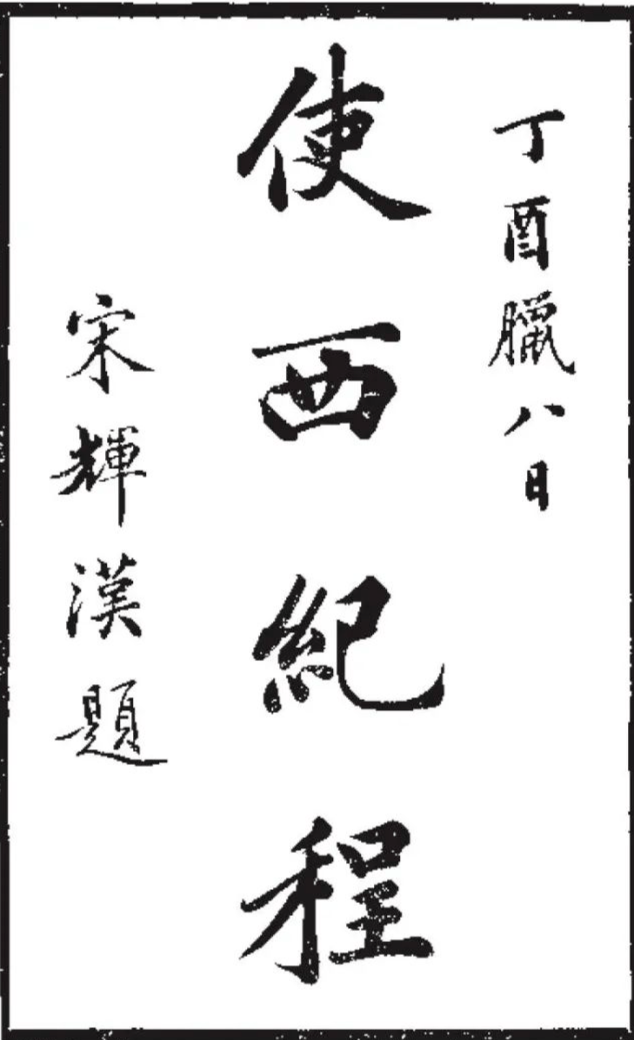 丁酉臘八日
使西紀程
宋輝漢題